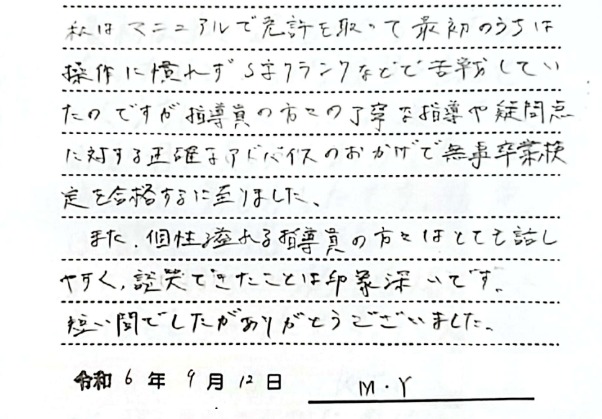 私はマニュアルで免許を取って最初のうちは
操作に慣れずS字クランクなどで苦戦してい
たのですが指導員の方々の丁寧な指導や疑問点
に対する正確なアドバイスのおかげで無事卒業検
定を合格するに至りました。
また、個性溢れる指導員の方々はとても話し
やすく、談笑できたことは印象深いです。
短い間でしたがありがとうございました。
令和 6 年 9 月 12 日 M・Y